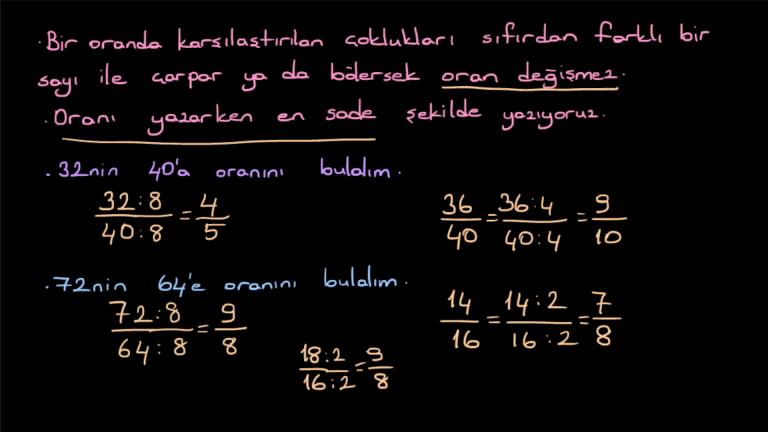 . Bir oranda karşılaştırılan çoklukları sıfırdan farklı bir
sayı ile çarpar ya da bölersek oran değişmez.
. Oranı yazarken en sade şekilde yazıyoruz.
. 32nin 40'a oranını bulalım.
32:8/40:8 = 4/5
36/40 = 36:4/40:4 = 9/10
. 72nin 64'e oranını bulalım.
72:8/64:8 = 9/8
14/16 = 14:2/16:2 = 7/8
18:2/16:2 = 9/8